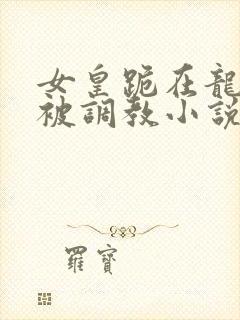 女皇跪在龍
被調教小説
羅寶